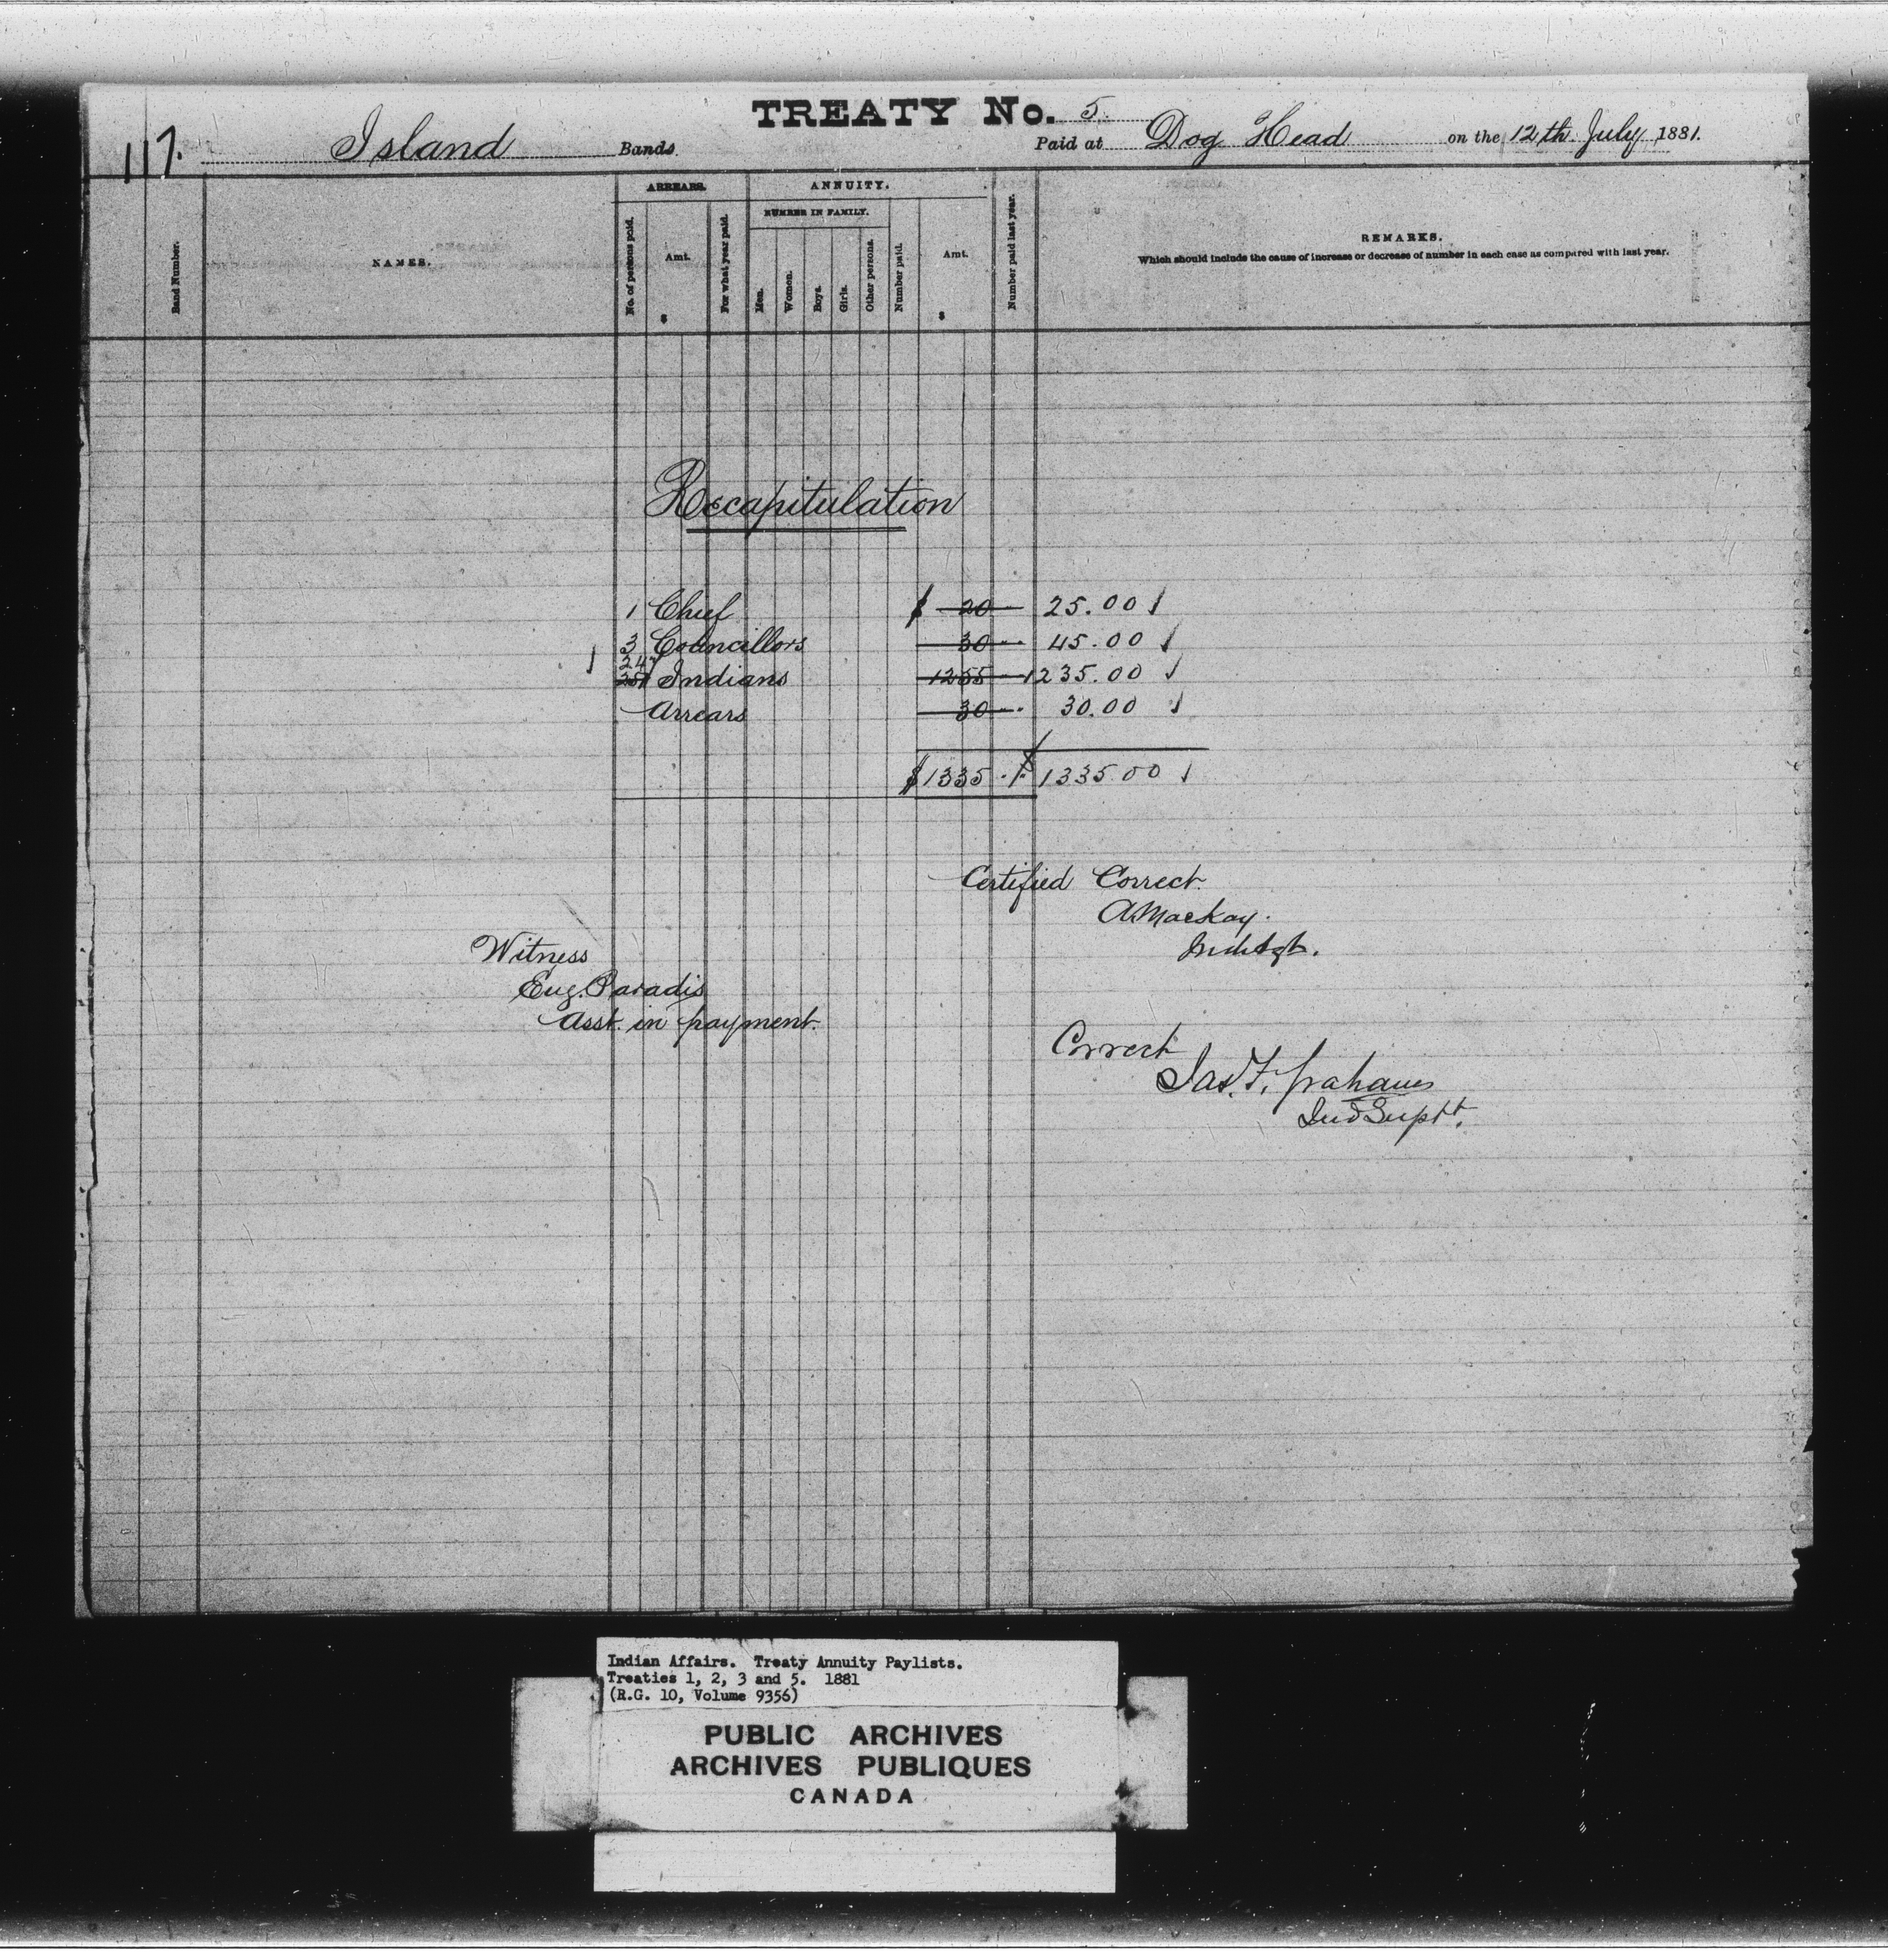 TREATY No. 5.
117. Island Bands. Paid at Dog Head on the 12th July, 1881.
ARREARS. ANNUITY.
NUMBER IN FAMILY.
Band Number. NAMES. No. of persons paid. Amt. $ For what year paid. Men. Women. Boys. Girls. Other persons. Number paid. Amt. $ Number paid last year. REMARKS.
Which should include the cause of increase or decrease of number in each case as compared with last year.
Recapitulation
1 Chief $ 20 25.00
3 Councillors 30 45.00
247
251 Indians 1255 1235.00
Arrears 30 30.00
$1335 $1335.00
Certified Correct.
A. Mackay.
Ind. Agt.
Witness
Eug. Paradis
Asst. in payment.
Correct
Jas. F. Graham
Ind Supt.
Indian Affairs. Treaty Annuity Paylists.
Treaties 1, 2, 3 and 5. 1881
(R.G. 10, Volume 9356)
PUBLIC ARCHIVES
ARCHIVES PUBLIQUES
CANADA